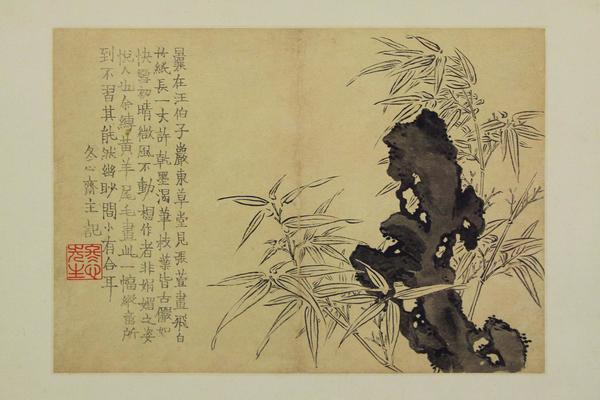 曩在汪伯子巖東草堂見張萱畫飛白
竹紙長一丈許乾墨渴筆枝葉皆古儼如
快雪初晴微風不動想作者非娟媚之姿
悅人也今縛黃羊尾毛畫此一幅縱意所
到不習其能然幽眇間小有合耳
冬心齋主記
冬心先生